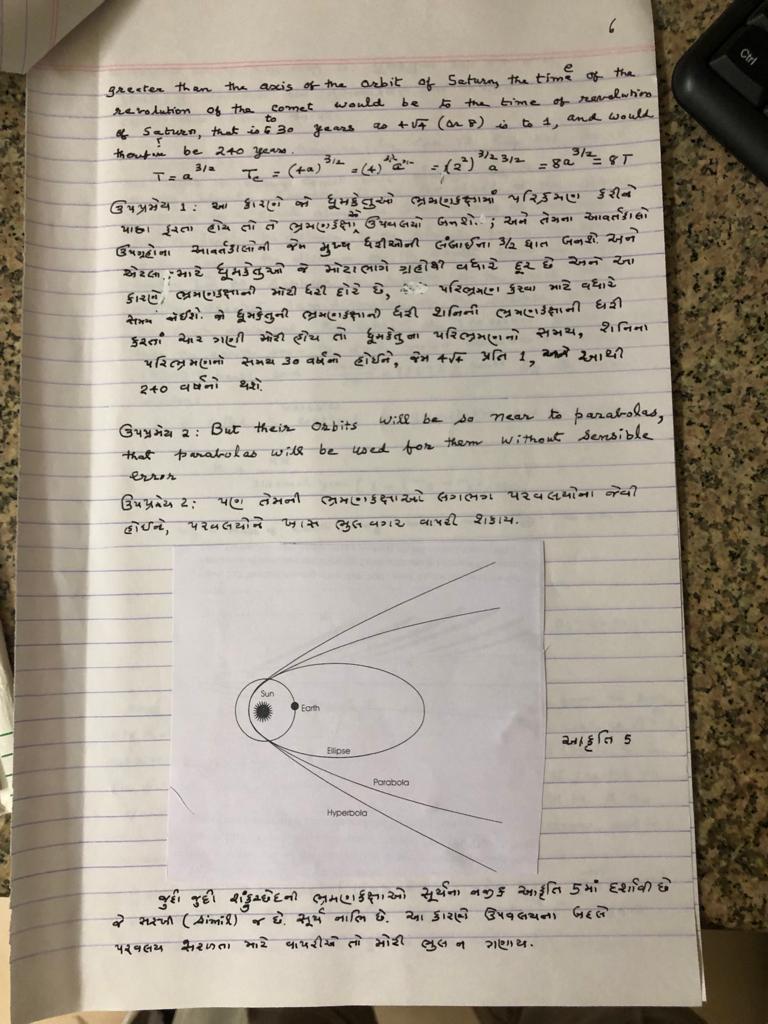 6
greater than the axis of the orbit of Saturn, the time of the
revolution of the comet would be to the time of revolution
of Saturn, that is to 30 years as 4√4 (or 8) is to 1, and would
be 240 years.
T = a^3/2 Tc = (4a)^3/2 = (4)^3/2 a^3/2 = (2²)^3/2 a^3/2 = 8a^3/2 = 8T
ઉપપ્રમેય 1 : આ કારણે જો ધૂમકેતુઓ ભ્રમણકક્ષામાં પરિક્રમણ કરીને
પાછા ફરતા હોય તો તે ભ્રમણકક્ષાઓ ઉપવલયો બનશે. ; અને તેમના આવર્તકાલો
ઉપગ્રહોના આવર્તકાલોની જેમ મુખ્ય ધરીઓની લંબાઈના 3/2 ઘાત બનશે. અને
એટલા માટે ધૂમકેતુઓ જે મોટાભાગે ગ્રહોથી વધારે દૂર છે અને આ
કારણે ભ્રમણકક્ષાની મોટી ધરી દોરે છે, પરિભ્રમણ કરવા માટે વધારે
સમય જોઈશે. જો ધૂમકેતુની ભ્રમણકક્ષાની ધરી શનિની ભ્રમણકક્ષાની ધરી
કરતાં ચાર ગણી મોટી હોય તો ધૂમકેતુના પરિભ્રમણનો સમય, શનિના
પરિભ્રમણનો સમય 30 વર્ષનો હોઈને, જેમ 4√4 પ્રતિ 1, અને આથી
240 વર્ષનો થશે.
ઉપપ્રમેય 2 : But their orbits will be so near to parabolas,
that parabolas will be used for them without sensible
error
ઉપપ્રમેય 2 : પણ તેમની ભ્રમણકક્ષાઓ લગભગ પરવલયોના જેવી
હોઈને, પરવલયોને ખાસ ભુલ વગર વાપરી શકાય.
Sun
Earth
Ellipse
Parabola
Hyperbola
આકૃતિ 5
જુદી જુદી શંકુચ્છેદની ભ્રમણકક્ષાઓ સૂર્યના નજીક આકૃતિ 5માં દર્શાવી છે
જે સરખી (simil) જ છે. સૂર્ય નાભિ છે. આ કારણે ઉપવલયના બદલે
પરવલય સરળતા માટે વાપરીએ તો મોટી ભુલ ન ગણાય.
Ctrl